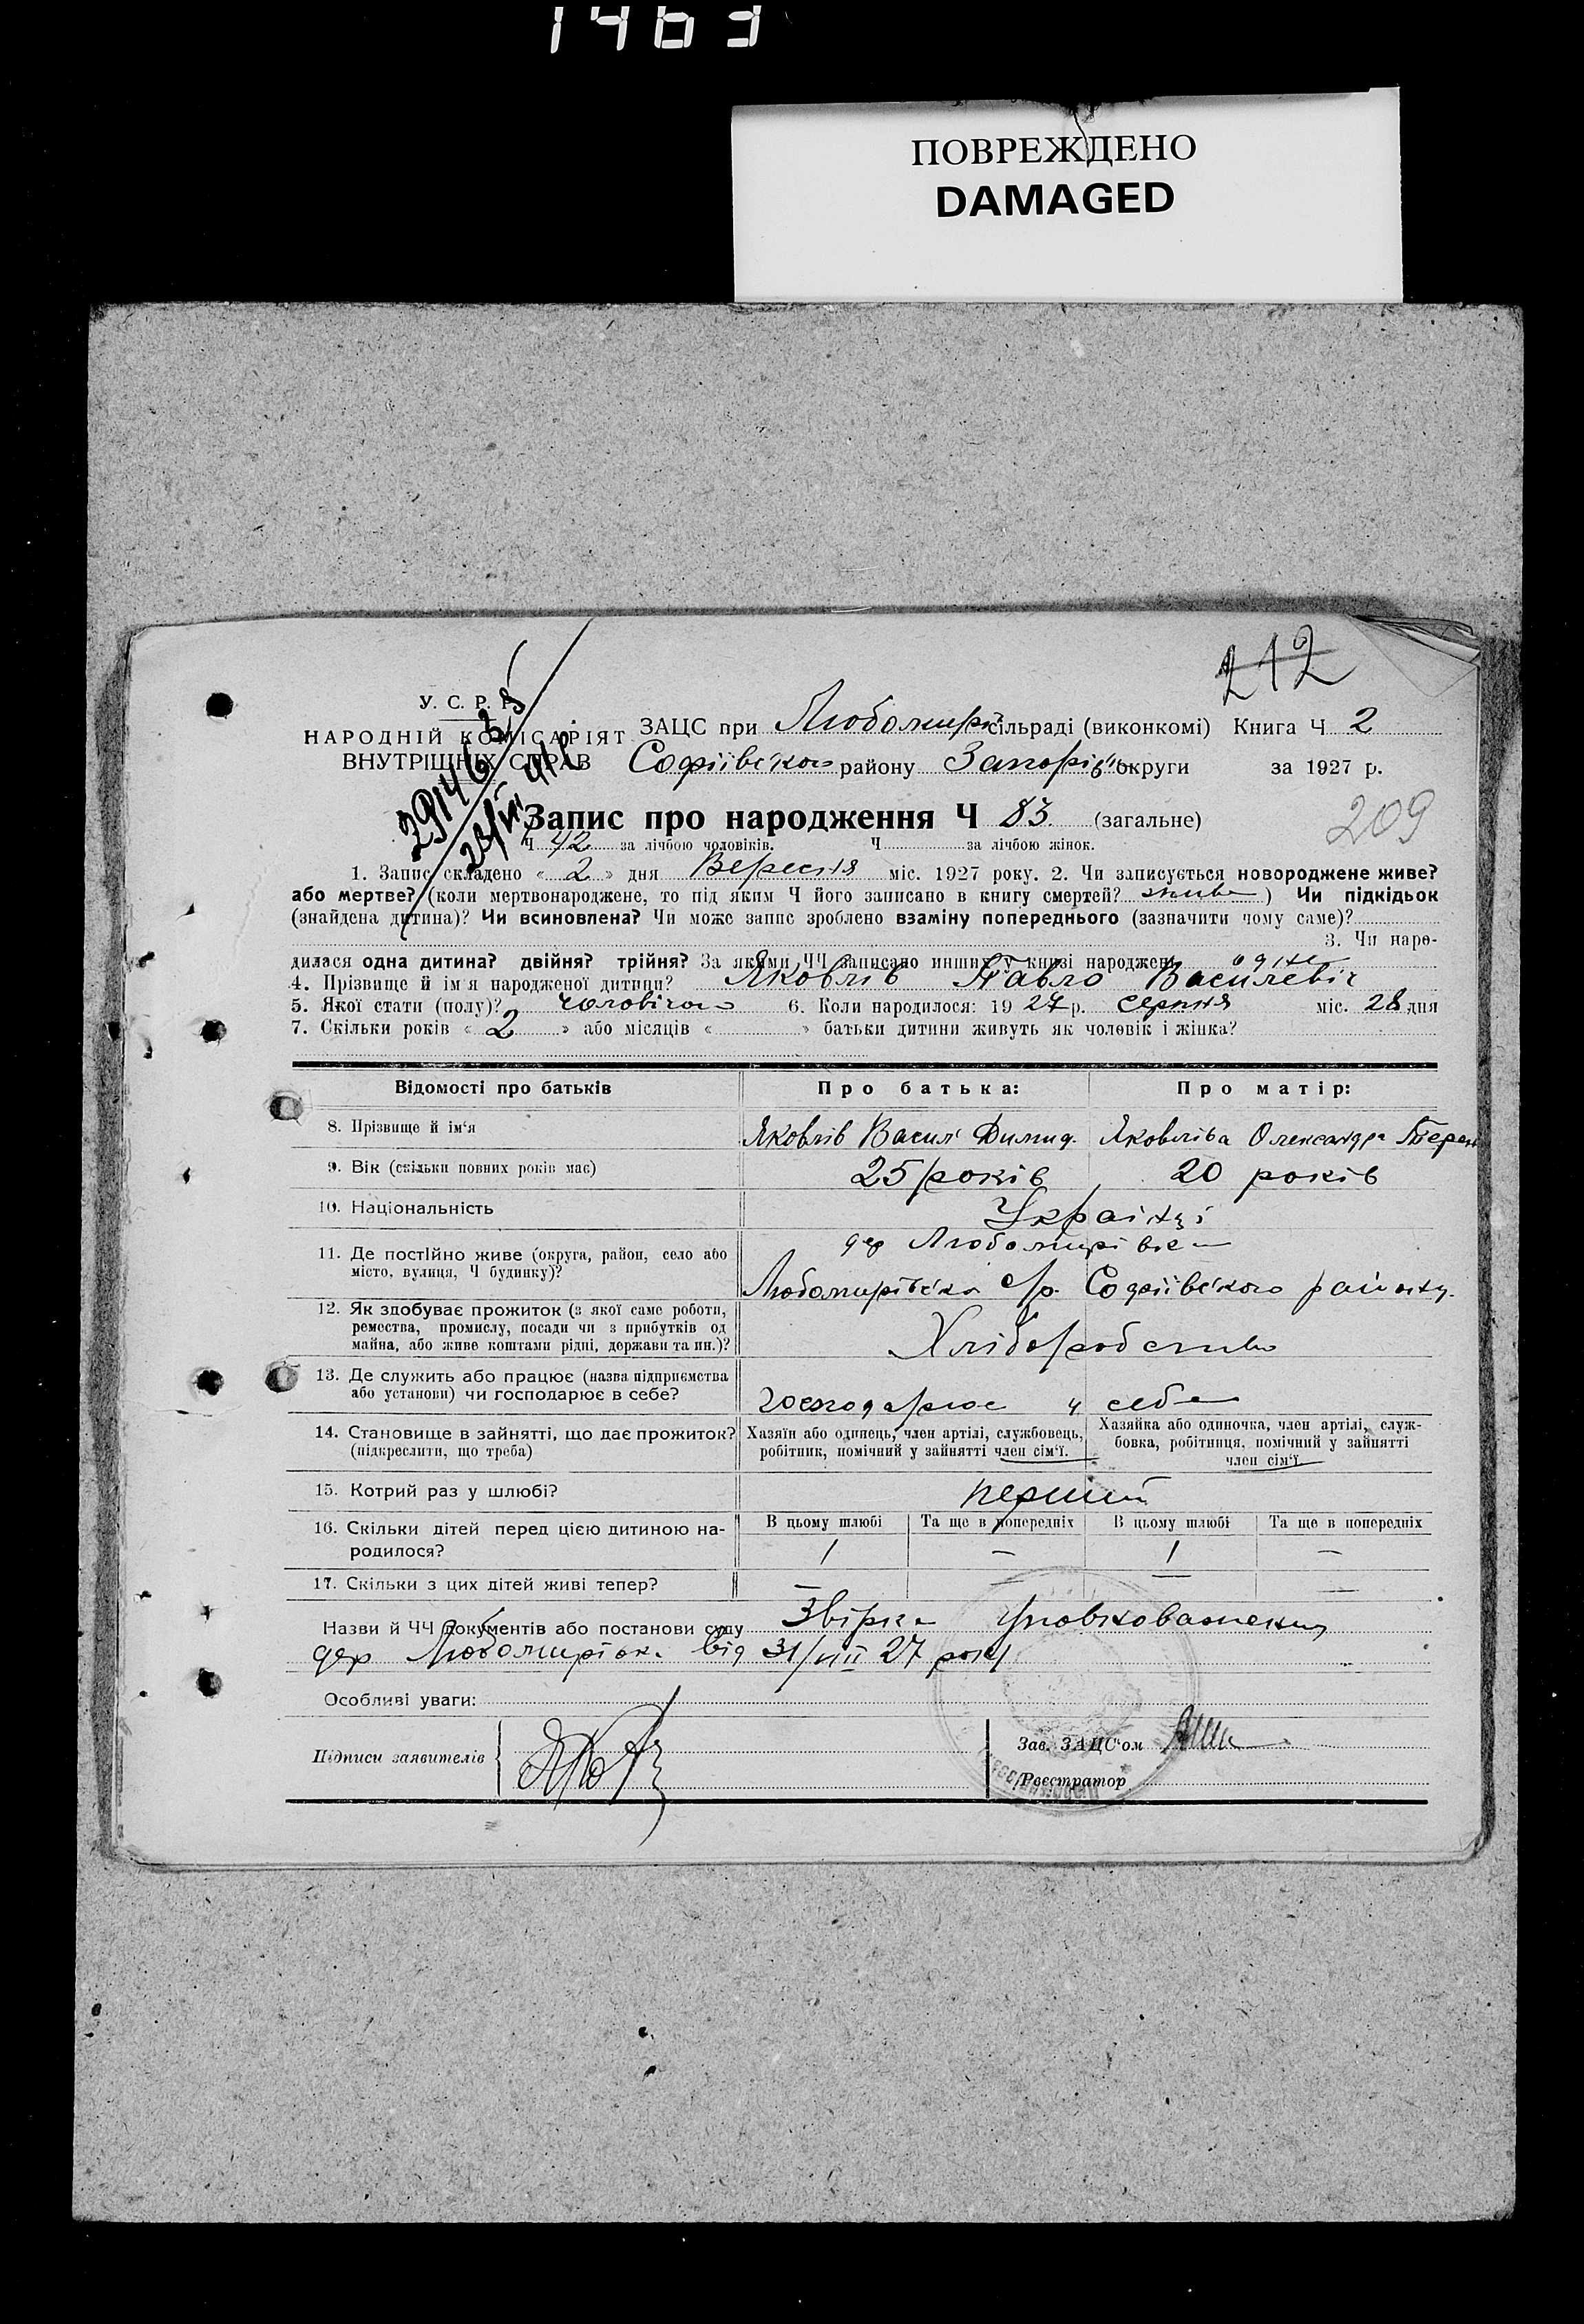 1463
ПОВРЕЖДЕНО
DAMAGED
212
У. С. Р. Р.
НАРОДНІЙ КОМІСАРІЯТ
ВНУТРІШНІХ СПРАВ
ЗАЦС при Любомирів сільраді (виконкомі) Книга Ч 2
Софіївського району Запорізь округи за 1927 р.
Запис про народження Ч 83 (загальне)
209
Ч 42 за лічбою чоловіків. Ч за лічбою жінок.
1. Запис складено « 2 » дня Вересня міс. 1927 року. 2. Чи записується новороджене живе?
або мертве? (коли мертвонароджене, то під яким Ч його записано в книгу смертей? живе ) Чи підкідьок
(знайдена дитина)? Чи всиновлена? Чи може запис зроблено взаміну попереднього (зазначити чому саме)?
3. Чи наро-
дилася одна дитина? двійня? трійня? За якими ЧЧ записано инших у книзі народжень одне
4. Прізвище й ім'я народженої дитини? Яковлів Павло Василевіч
5. Якої стати (полу)? чоловічої 6. Коли народилося: 1927 р. серпня міс. 28 дня
7. Скільки років « 2 » або місяців « » батьки дитини живуть як чоловік і жінка?
Відомості про батьків Про батька: Про матір:
8. Прізвище й ім'я Яковлів Васил Димид. Яковліва Олександра Терен
9. Вік (скільки повних років має) 25 років 20 років
10. Національність Українці
11. Де постійно живе (округа, район, село або
місто, вулиця, Ч будинку)?
дер Любомирівка
Любомирівська с/р. Софіївського району.
12. Як здобуває прожиток (з якої саме роботи,
ремества, промислу, посади чи з прибутків од
майна, або живе коштами рідні, держави та ин.)?
Хліборобство
13. Де служить або працює (назва підприємства
або установи) чи господарює в себе?
господарює у себе
14. Становище в зайнятті, що дає прожиток?
(підкреслити, що треба)
Хазяїн або одинець, член артілі, службовець,
робітник, помічний у зайнятті член сім'ї.
Хазяйка або одиночка, член артілі, служ-
бовка, робітниця, помічний у зайнятті
член сім'ї.
15. Котрий раз у шлюбі? перший
16. Скільки дітей перед цією дитиною на-
родилося?
В цьому шлюбі Та ще в попередніх В цьому шлюбі Та ще в попередніх
1 — 1 —
17. Скільки з цих дітей живі тепер? — — — —
Назви й ЧЧ документів або постанови суду Звірка Уповноваженого
дер Любомирівк. від 31/VIII 27 року
Особливі уваги:
Підписи заявителів
Зав. ЗАЦС'ом
Реєстратор